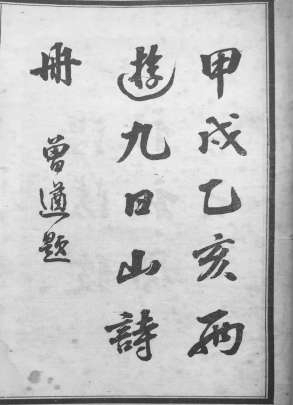 甲戌乙亥两
遊九日山詩
冊
曾遒題